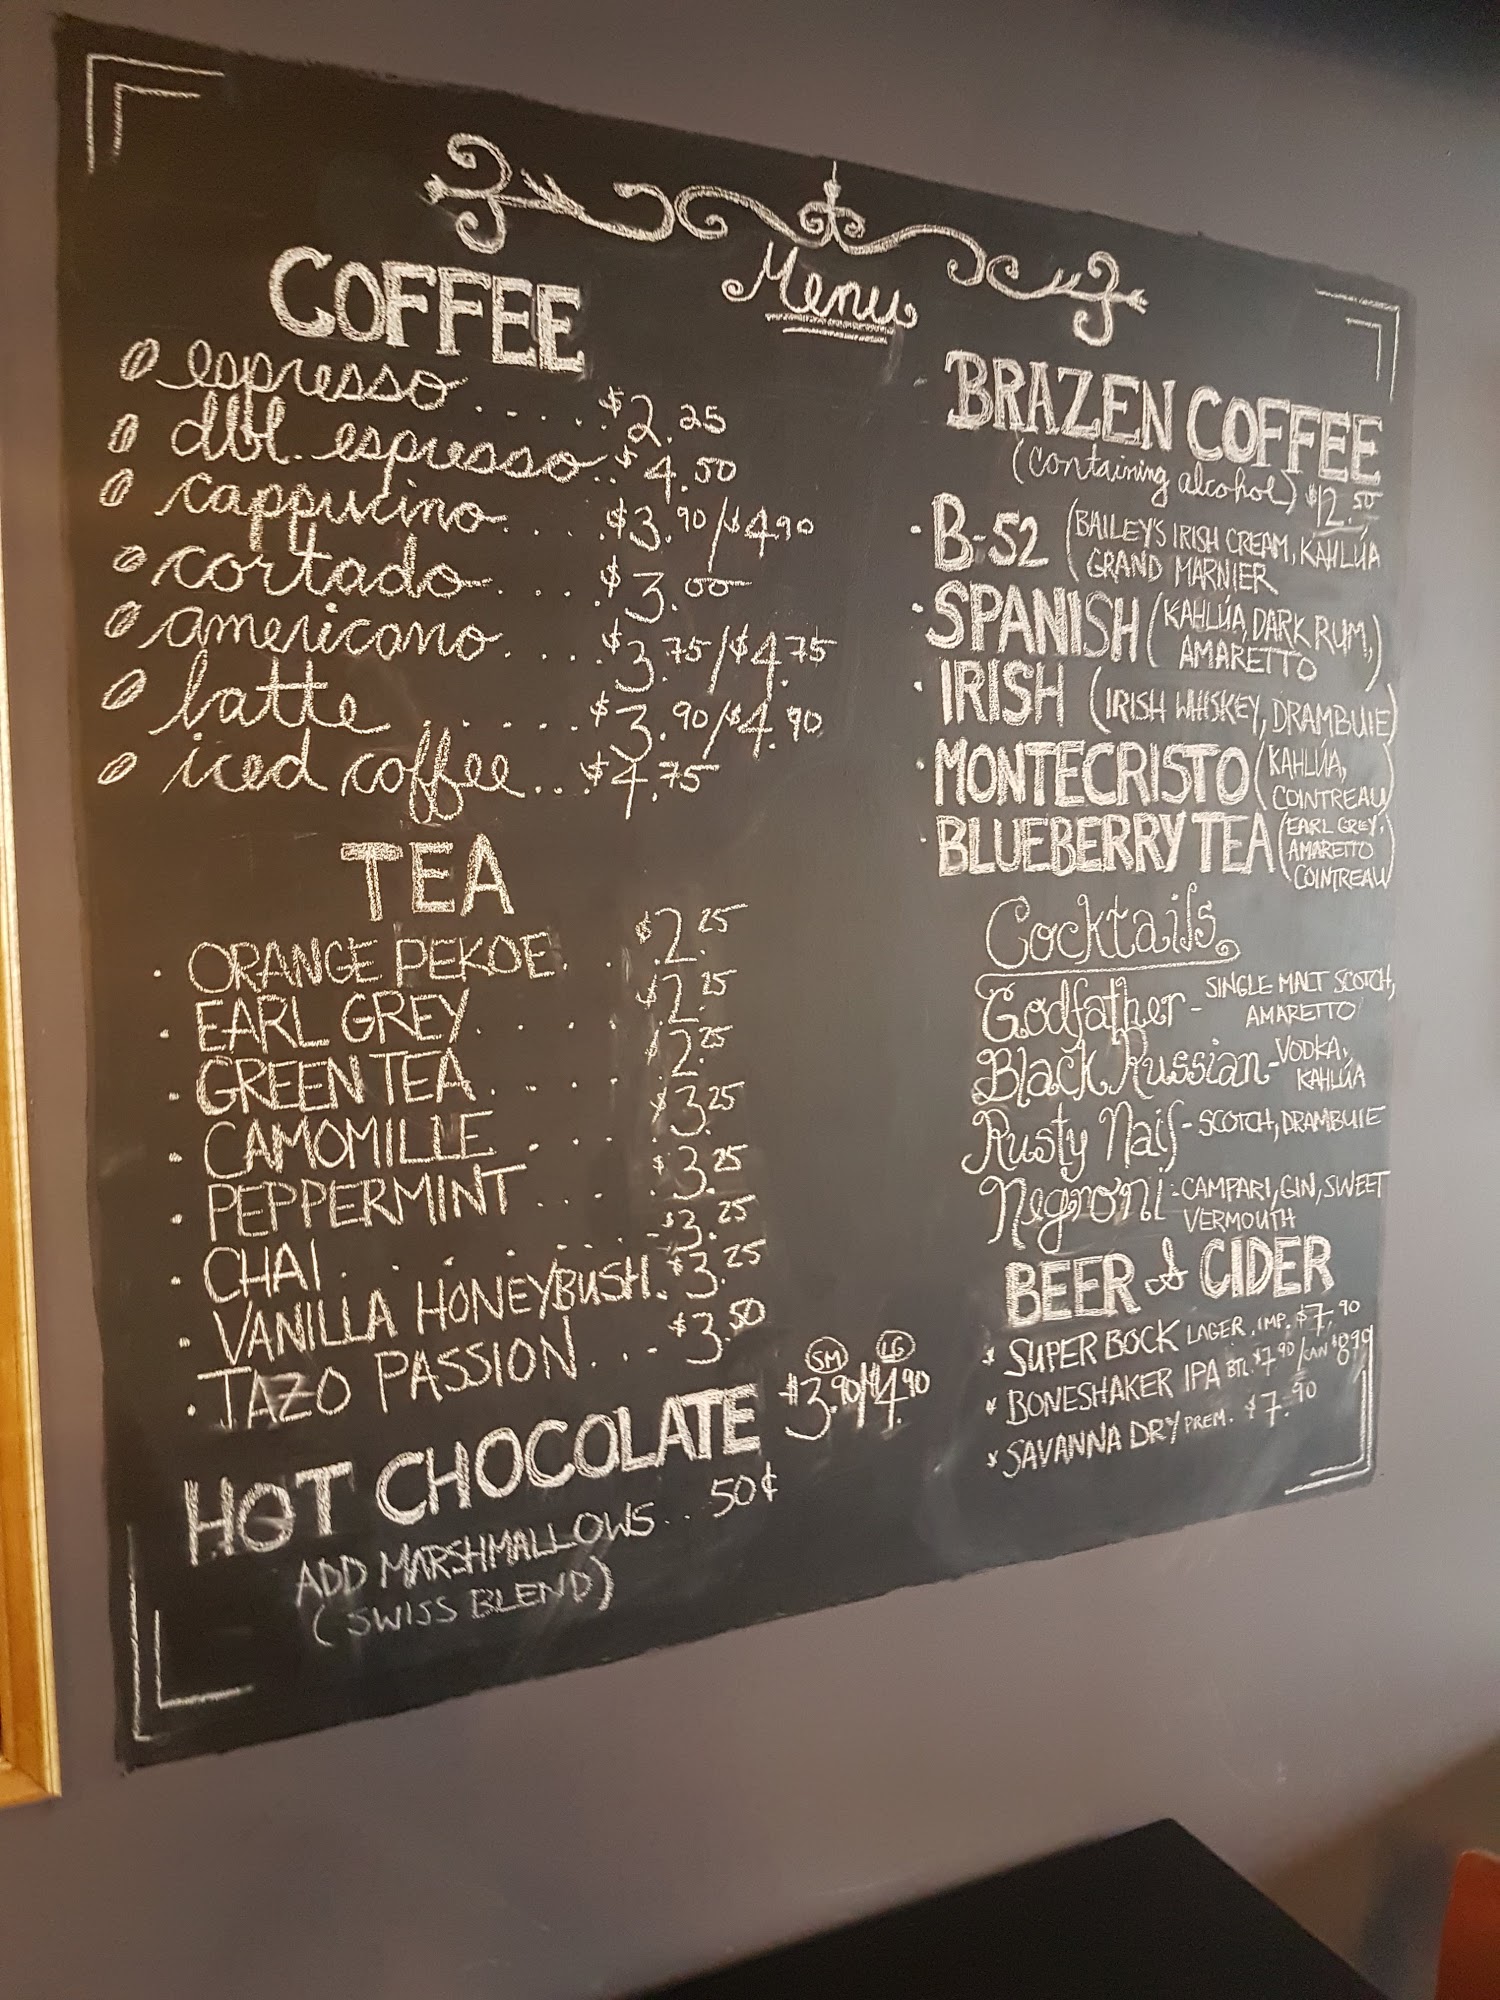 Menu
COFFEE
espresso.....$2.25
dbl. espresso..$4.50
cappucino....$3.90/$4.90
cortado....$3.00
americano....$3.75/$4.75
latte.....$3.90/$4.90
iced coffee...$4.75
TEA
· ORANGE PEKOE...$2.25
· EARL GREY....$2.25
· GREEN TEA....$2.25
· CAMOMILLE....$3.25
· PEPPERMINT....$3.25
· CHAI......$3.25
· VANILLA HONEYBUSH.$3.25
· TAZO PASSION...$3.50
SM LG
HOT CHOCOLATE $3.90/$4.90
ADD MARSHMALLOWS...50¢
(SWISS BLEND)
BRAZEN COFFEE
(containing alcohol) $12.50
· B-52 (BAILEY'S IRISH CREAM, KAHLÚA
GRAND MARNIER
· SPANISH (KAHLÚA, DARK RUM,
AMARETTO)
· IRISH (IRISH WHISKEY, DRAMBUIE)
· MONTECRISTO (KAHLÚA,
COINTREAU)
· BLUEBERRY TEA (EARL GREY,
AMARETTO
COINTREAU)
Cocktails
Godfather - SINGLE MALT SCOTCH,
AMARETTO
Black Russian - VODKA,
KAHLÚA
Rusty Nail - SCOTCH, DRAMBUIE
Negroni - CAMPARI, GIN, SWEET
VERMOUTH
BEER & CIDER
* SUPER BOCK LAGER, IMP. $7.90
* BONESHAKER IPA BTL. $7.90/CAN $8.90
* SAVANNA DRY PREM. $7.90